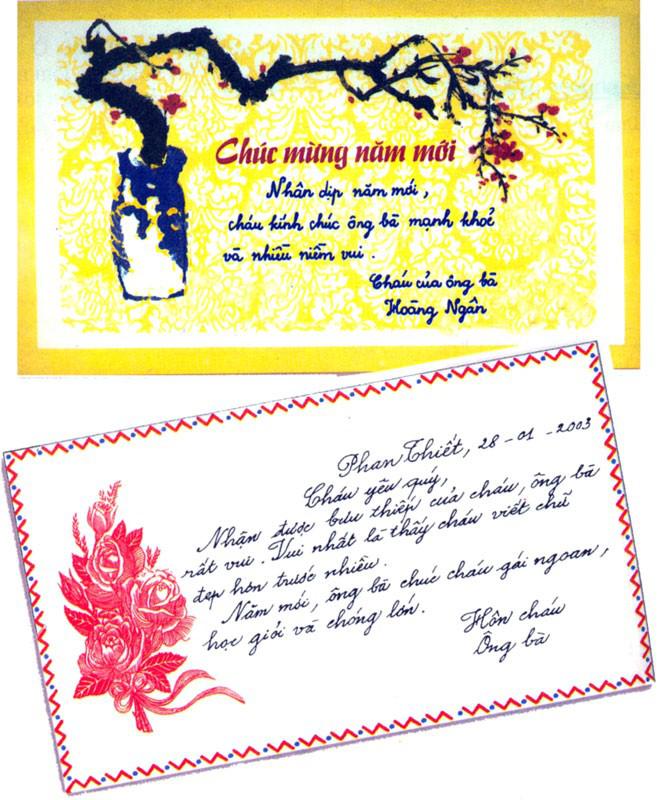 Chúc mừng năm mới
Nhân dịp năm mới,
cháu kính chúc ông bà mạnh khoẻ
và nhiều niềm vui.
Cháu của ông bà
Hoàng Ngân
Phan Thiết, 28-01-2003
Cháu yêu quý,
Nhận được bưu thiếp của cháu, ông bà
rất vui. Vui nhất là thấy cháu viết chữ
đẹp hơn trước nhiều.
Năm mới, ông bà chúc cháu gái ngoan,
học giỏi và chóng lớn.
Hôn cháu
Ông bà